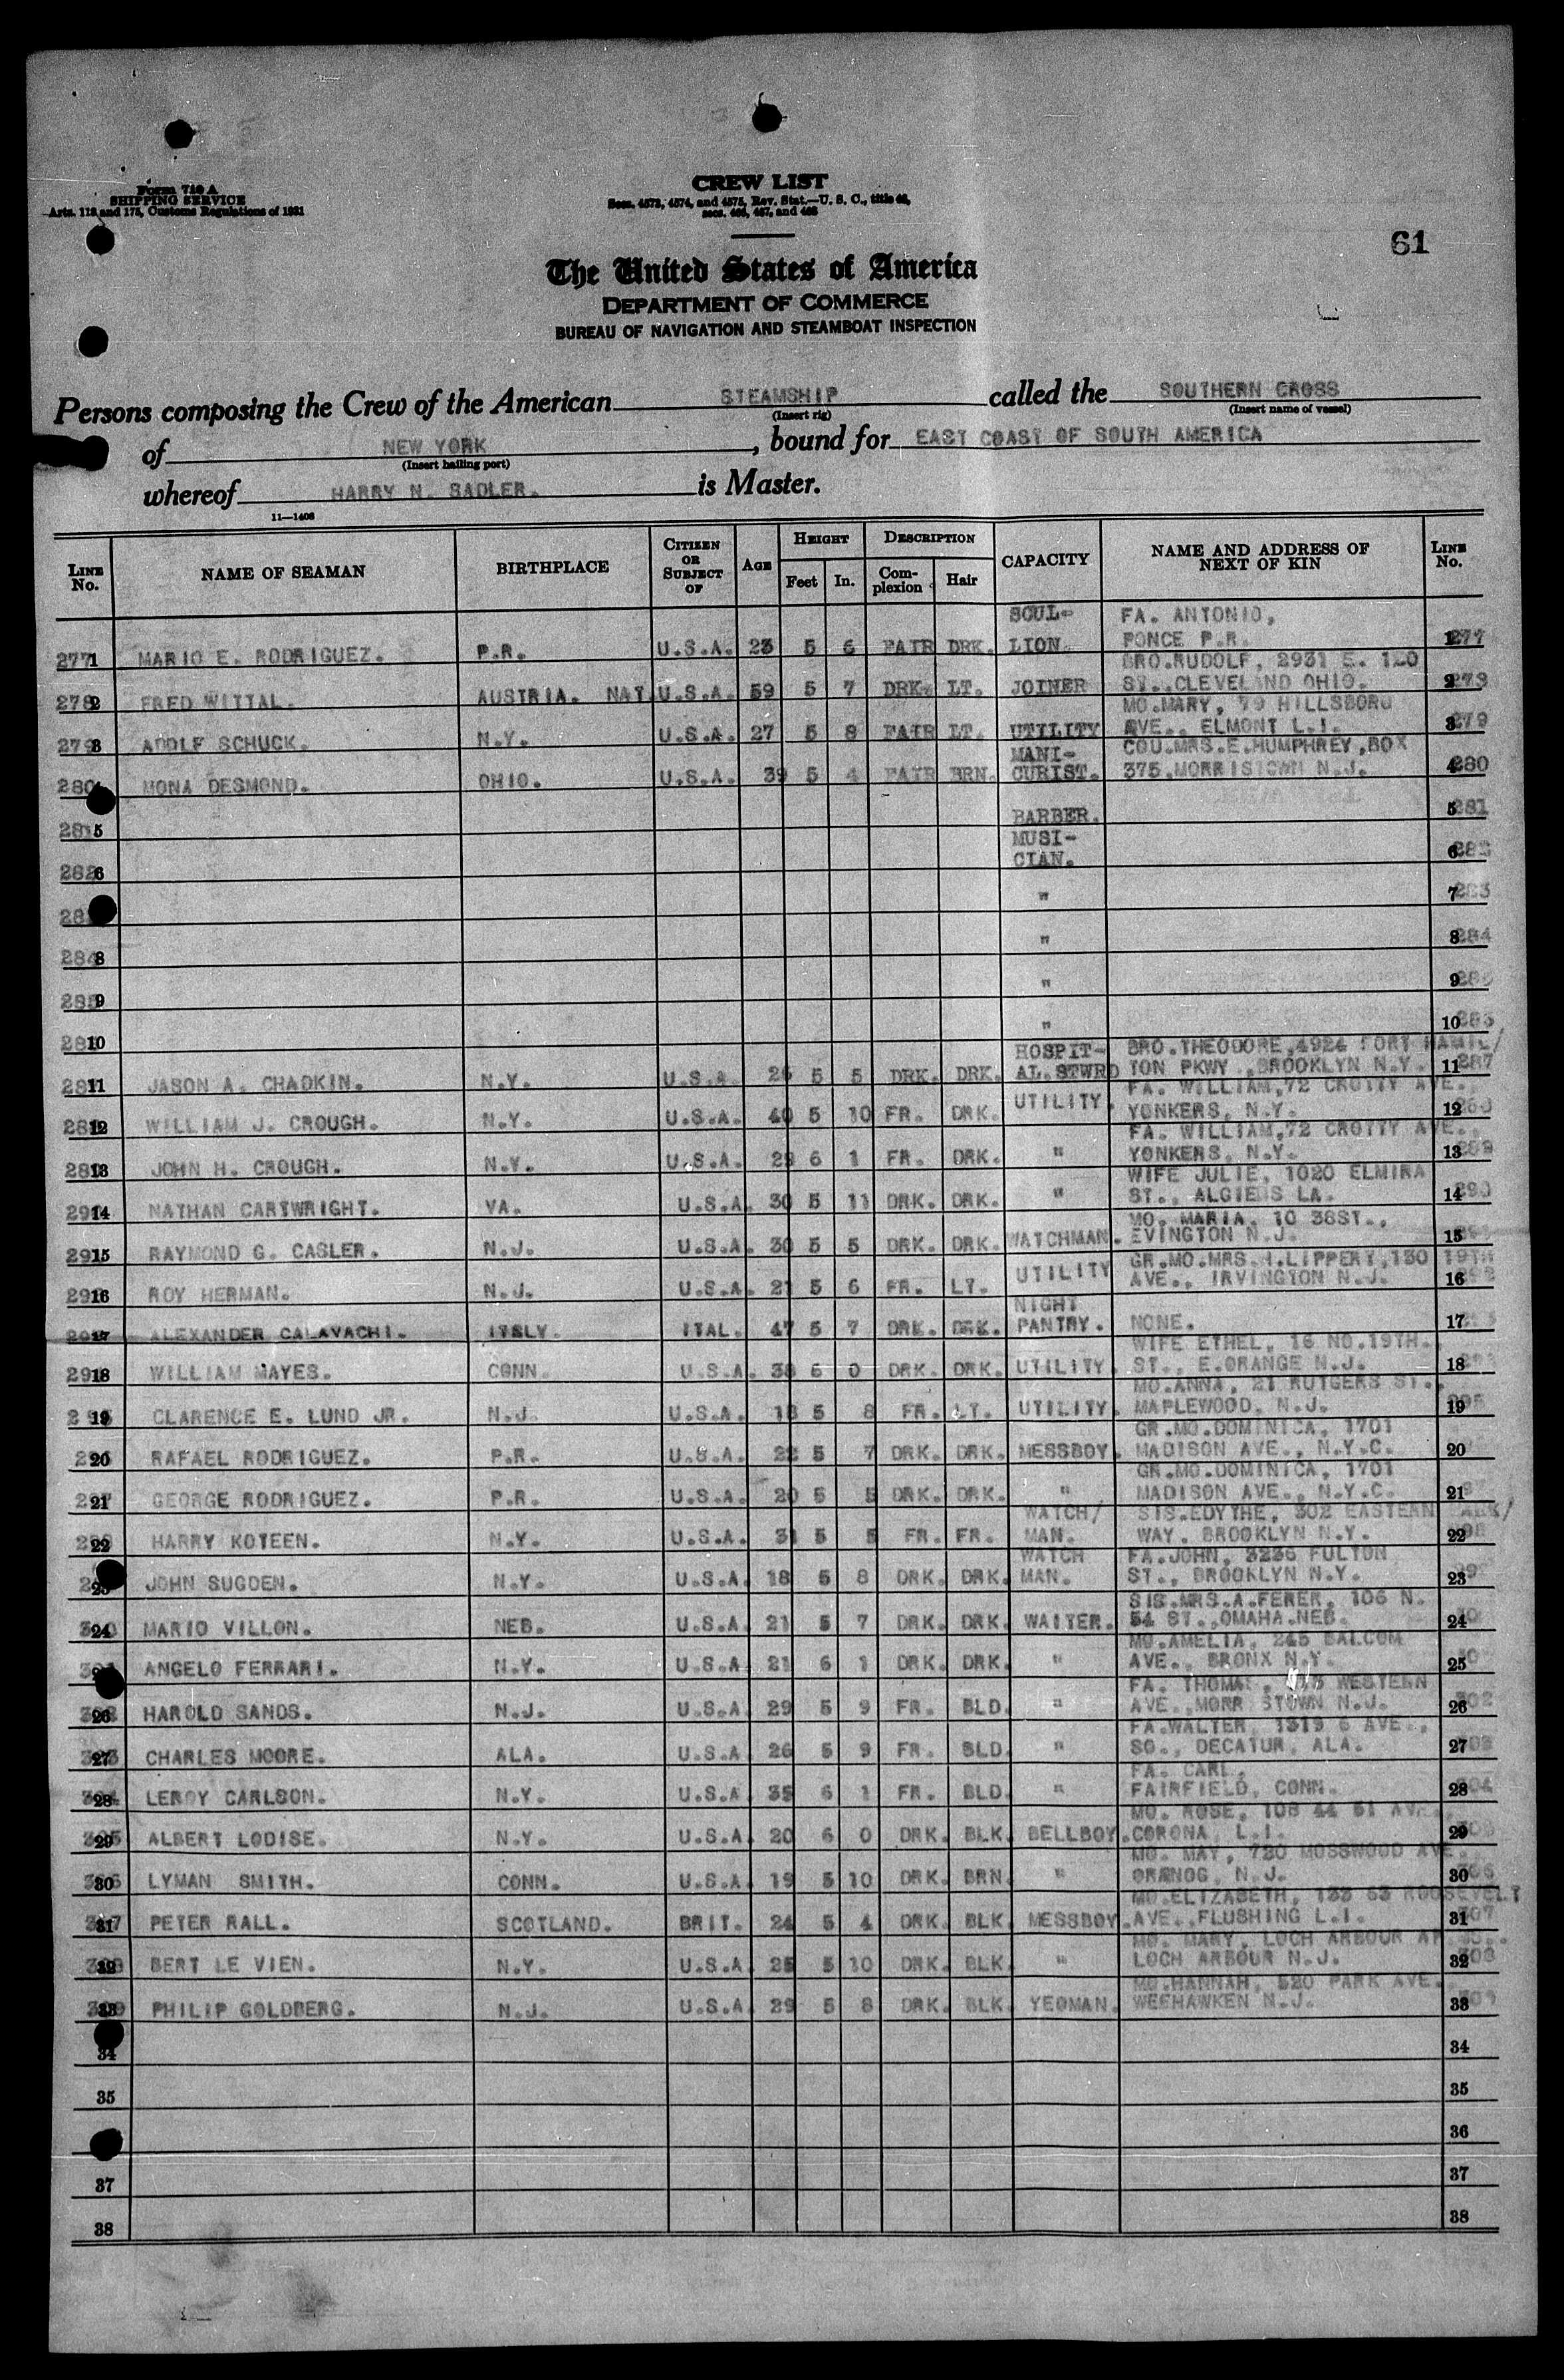 Form 710 A
SHIPPING SERVICE
Arts. 118 and 175, Customs Regulations of 1931
CREW LIST
Secs. 4573, 4574, and 4575, Rev. Stat.—U. S. C., title 46,
secs. 466, 467, and 468
61
The United States of America
DEPARTMENT OF COMMERCE
BUREAU OF NAVIGATION AND STEAMBOAT INSPECTION
Persons composing the Crew of the American STEAMSHIP called the SOUTHERN CROSS
(Insert rig) (Insert name of vessel)
of NEW YORK, bound for EAST COAST OF SOUTH AMERICA
(Insert hailing port)
whereof HARRY N. SADLER. is Master.
11—1408
LINE No. NAME OF SEAMAN BIRTHPLACE CITIZEN OR SUBJECT OF AGE HEIGHT Feet In. DESCRIPTION Complexion Hair CAPACITY NAME AND ADDRESS OF NEXT OF KIN LINE No.
SCUL- FA. ANTONIO,
277 1 MARIO E. RODRIGUEZ. P.R. U.S.A. 23 5 6 FAIR DRK. LION. PONCE P.R. 1 277
BRO.RUDOLF, 2931 E. 120
278 2 FRED WITTAL. AUSTRIA. NAT. U.S.A. 59 5 7 DRK. LT. JOINER ST., CLEVELAND OHIO. 2 278
MO.MARY, 79 HILLSBORO
279 3 ADOLF SCHUCK. N.Y. U.S.A. 27 5 8 FAIR LT. UTILITY AVE., ELMONT L.I. 3 279
MANI- COU.MRS.E.HUMPHREY,BOX
280 MONA DESMOND. OHIO. U.S.A. 39 5 4 FAIR BRN. CURIST. 375,MORRISTOWN N.J. 4 280
281 5 BARBER. 5 281
MUSI-
282 6 CIAN. 6 282
28 " 7 283
284 8 " 8 284
285 9 " 9 285
286 10 " 10 286
HOSPIT- BRO.THEODORE,4924 FORT HAMIL/
287 11 JASON A. CHADKIN. N.Y. U.S.A. 26 5 5 DRK. DRK. AL.STWRD TON PKWY.,BROOKLYN N.Y. 11 287
FA. WILLIAM,72 CROTTY AVE.,
288 12 WILLIAM J. CROUGH. N.Y. U.S.A. 40 5 10 FR. DRK. UTILITY. YONKERS, N.Y. 12
FA. WILLIAM,72 CROTTY AVE.,
289 13 JOHN H. CROUGH. N.Y. U.S.A. 28 6 1 FR. DRK. " YONKERS, N.Y. 13 289
WIFE JULIE, 1020 ELMIRA
290 14 NATHAN CARTWRIGHT. VA. U.S.A. 30 5 11 DRK. DRK. " ST., ALGIERS LA. 14 290
MO. MARIA, 10 38ST.,
291 15 RAYMOND G. CASLER. N.J. U.S.A. 30 5 5 DRK. DRK. WATCHMAN. EVINGTON N.J. 15
GR.MO.MRS.H.LIPPERT,130 19TH
292 16 ROY HERMAN. N.J. U.S.A. 21 5 6 FR. LT. UTILITY AVE., IRVINGTON N.J. 16
NIGHT
17 ALEXANDER CALAVACHI. ITSLY. ITAL. 47 5 7 DRK. DRK. PANTRY. NONE. 17
WIFE ETHEL, 16 NO.19TH.
18 WILLIAM MAYES. CONN. U.S.A. 38 6 0 DRK. DRK. UTILITY. ST., E.ORANGE N.J. 18
MO.ANNA, 21 RUTGERS ST.,
19 CLARENCE E. LUND JR. N.J. U.S.A. 18 5 8 FR. LT. UTILITY. MAPLEWOOD, N.J. 19
GR.MO.DOMINICA, 1701
20 RAFAEL RODRIGUEZ. P.R. U.S.A. 22 5 7 DRK. DRK. MESSBOY. MADISON AVE., N.Y.C. 20
GR.MO.DOMINICA, 1701
21 GEORGE RODRIGUEZ. P.R. U.S.A. 20 5 5 DRK. DRK. " MADISON AVE., N.Y.C. 21
WATCH/ SIS.EDYTHE, 302 EASTERN ARK/
22 HARRY KOTEEN. N.Y. U.S.A. 31 5 5 FR. FR. MAN. WAY, BROOKLYN N.Y. 22
WATCH FA.JOHN, 3236 FULTON
23 JOHN SUGDEN. N.Y. U.S.A. 18 5 8 DRK. DRK. MAN. ST., BROOKLYN N.Y. 23
SIS.MRS.A.FERER, 106 N.
24 MARIO VILLON. NEB. U.S.A. 21 5 7 DRK. DRK. WAITER. 54 ST.,OMAHA,NEB. 24
MO.AMELIA, 245 BALCOM
ANGELO FERRARI. N.Y. U.S.A. 21 6 1 DRK. DRK. " AVE., BRONX N.Y. 25
FA. THOMAS, WESTERN
26 HAROLD SANDS. N.J. U.S.A. 29 5 9 FR. BLD. " AVE.,MORR STOWN N.J. 26 302
FA.WALTER, 1319 6 AVE.,
27 CHARLES MOORE. ALA. U.S.A. 26 5 9 FR. BLD. " SO., DECATUR, ALA. 27
FA. CARL,
28 LEROY CARLSON. N.Y. U.S.A. 35 6 1 FR. BLD. " FAIRFIELD, CONN. 28
MO. ROSE, 108 44 51 AVE.,
29 ALBERT LODISE. N.Y. U.S.A. 20 6 0 DRK. BLK. BELLBOY. CORONA, L.I. 29
MO. MAY, 720 MOSSWOOD AVE.
30 LYMAN SMITH. CONN. U.S.A. 19 5 10 DRK. BRN. " ORANOG, N.J. 30
MO.ELIZABETH, 133 63 ROOSEVELT
31 PETER RALL. SCOTLAND. BRIT. 24 5 4 DRK. BLK. MESSBOY. AVE.,FLUSHING L.I. 31 307
MO. MARY, LOCH ARBOUR
32 BERT LE VIEN. N.Y. U.S.A. 25 5 10 DRK. BLK. " LOCH ARBOUR N.J. 32 308
MO.HANNAH, 520 PARK AVE.
33 PHILIP GOLDBERG. N.J. U.S.A. 29 5 8 DRK. BLK. YEOMAN. WEEHAWKEN N.J. 33
34 34
35 35
36
37 37
38 38